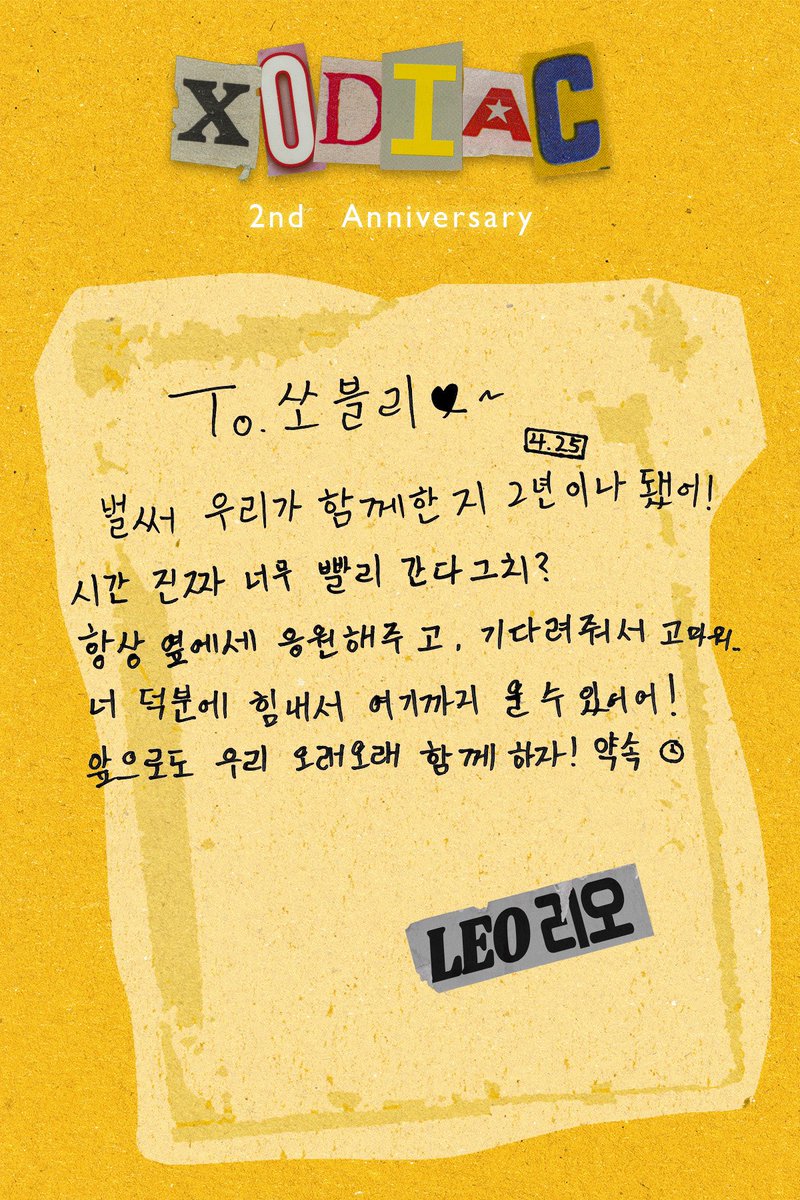 XODIAC
2nd Anniversary
To. 쏘블리♥~
4.25
벌써 우리가 함께한 지 2년이나 됐어!
시간 진짜 너무 빨리 간다그치?
항상 옆에세 응원해주고, 기다려줘서 고마워..
너 덕분에 힘내서 여기까지 올 수 있어어!
앞으로도 우리 오래오래 함께하자! 약속
LEO 리오